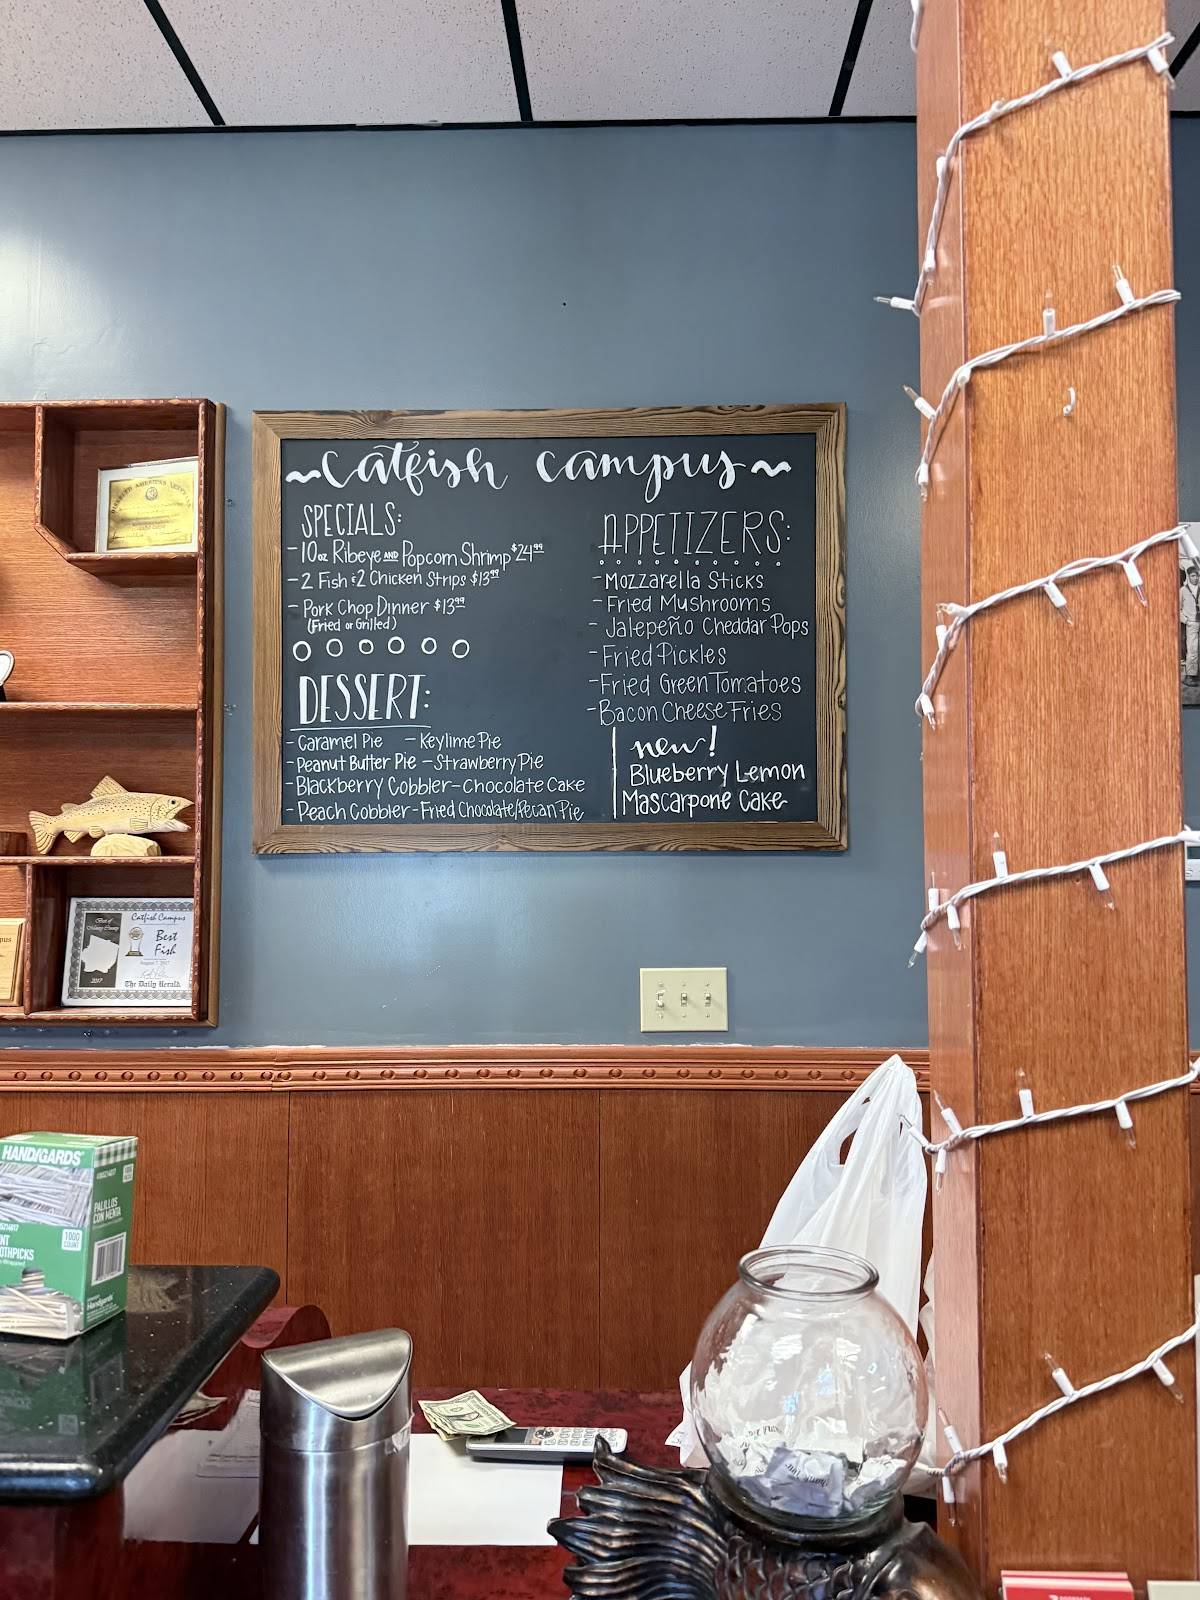 ~catfish campus~
SPECIALS:
-10oz Ribeye AND Popcorn Shrimp $24.99
-2 Fish & 2 Chicken Strips $13.99
- Pork Chop Dinner $13.99
(Fried or Grilled)
DESSERT:
- Caramel Pie - Keylime Pie
- Peanut Butter Pie - Strawberry Pie
- Blackberry Cobbler - Chocolate Cake
- Peach Cobbler - Fried Chocolate/Pecan Pie
APPETIZERS:
- Mozzarella Sticks
- Fried Mushrooms
- Jalepeño Cheddar Pops
- Fried Pickles
- Fried Green Tomatoes
- Bacon Cheese Fries
new!
Blueberry Lemon
Mascarpone Cake
Best of
2017
Catfish Campus
Best
Fish
August 7, 2017
The Daily Herald
HANDIGARDS
PALILLOS
CON MENTA
1000
COUNT